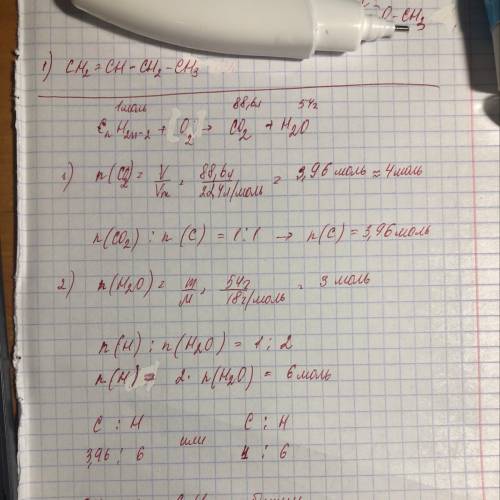 O-CH3
1) CH2=CH-CH2-CH3
1 моль 88,6л 54г
CnH2n-2 + O2 → CO2 + H2O
1) n(CO2) = V/Vm = 88,6л/22,4л/моль = 3,96 моль ≈ 4 моль
n(CO2) : n(C) = 1:1 → n(C) = 3,96 моль
2) n(H2O) = m/M = 54г/18г/моль = 3 моль
n(H) : n(H2O) = 1 : 2
n(H) = 2 · n(H2O) = 6 моль
C : H C : H
3,96 : 6 или 4 : 6